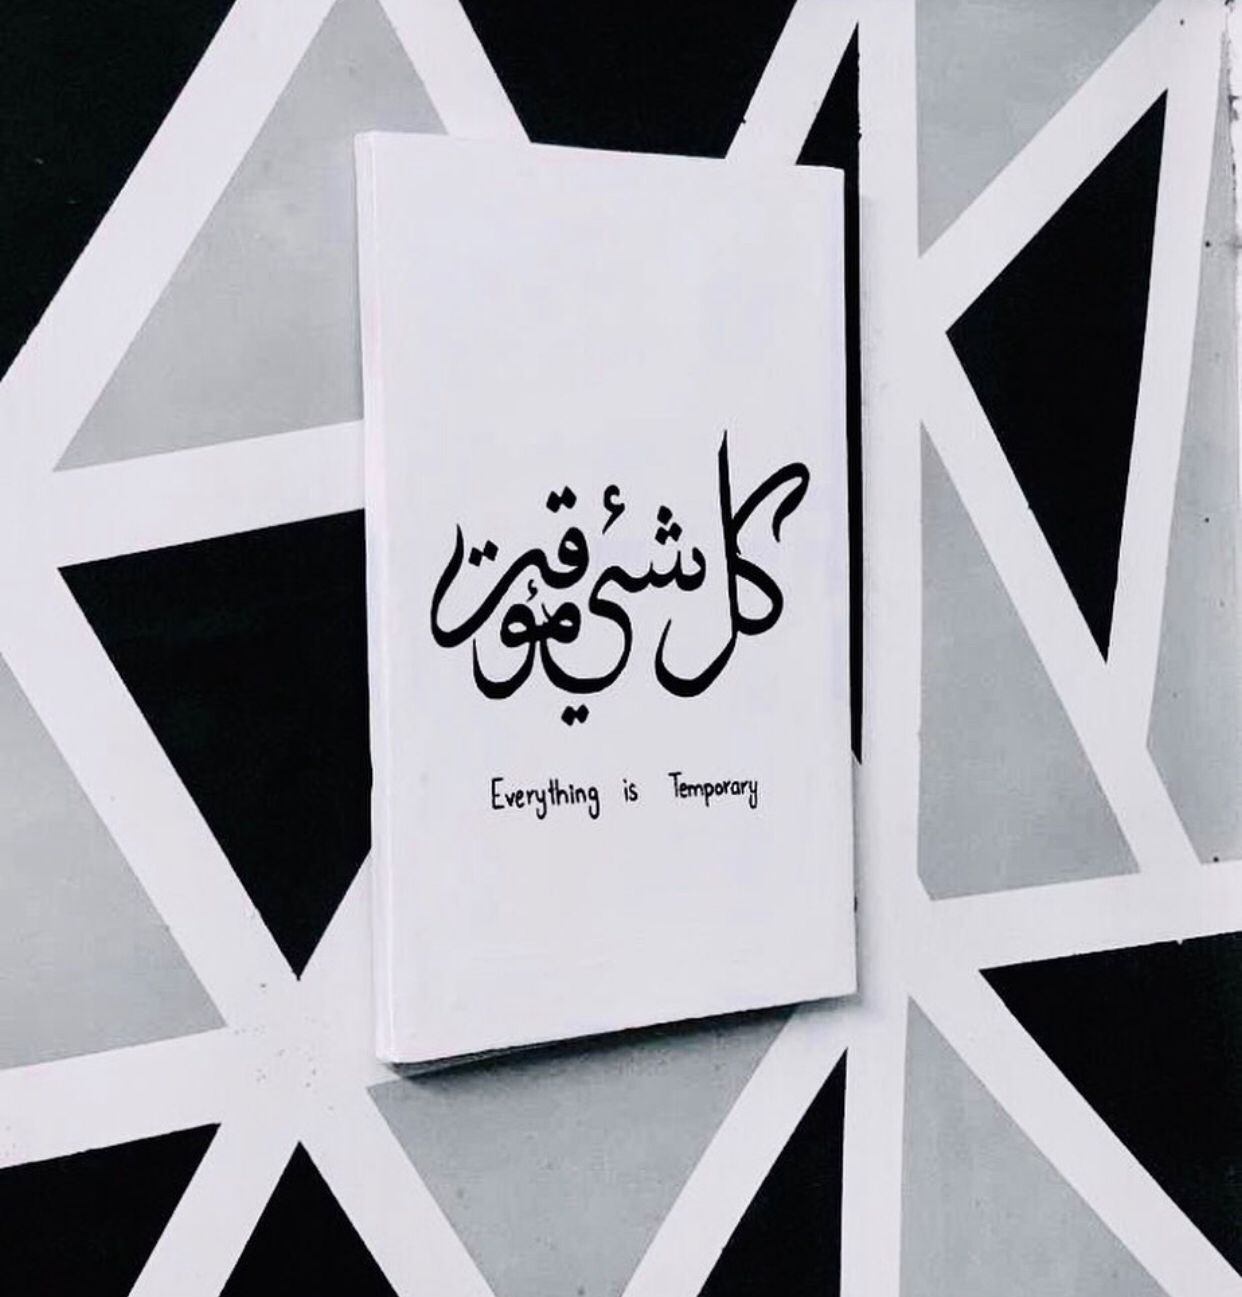 كل شئ مؤقت
Everything is Temporary